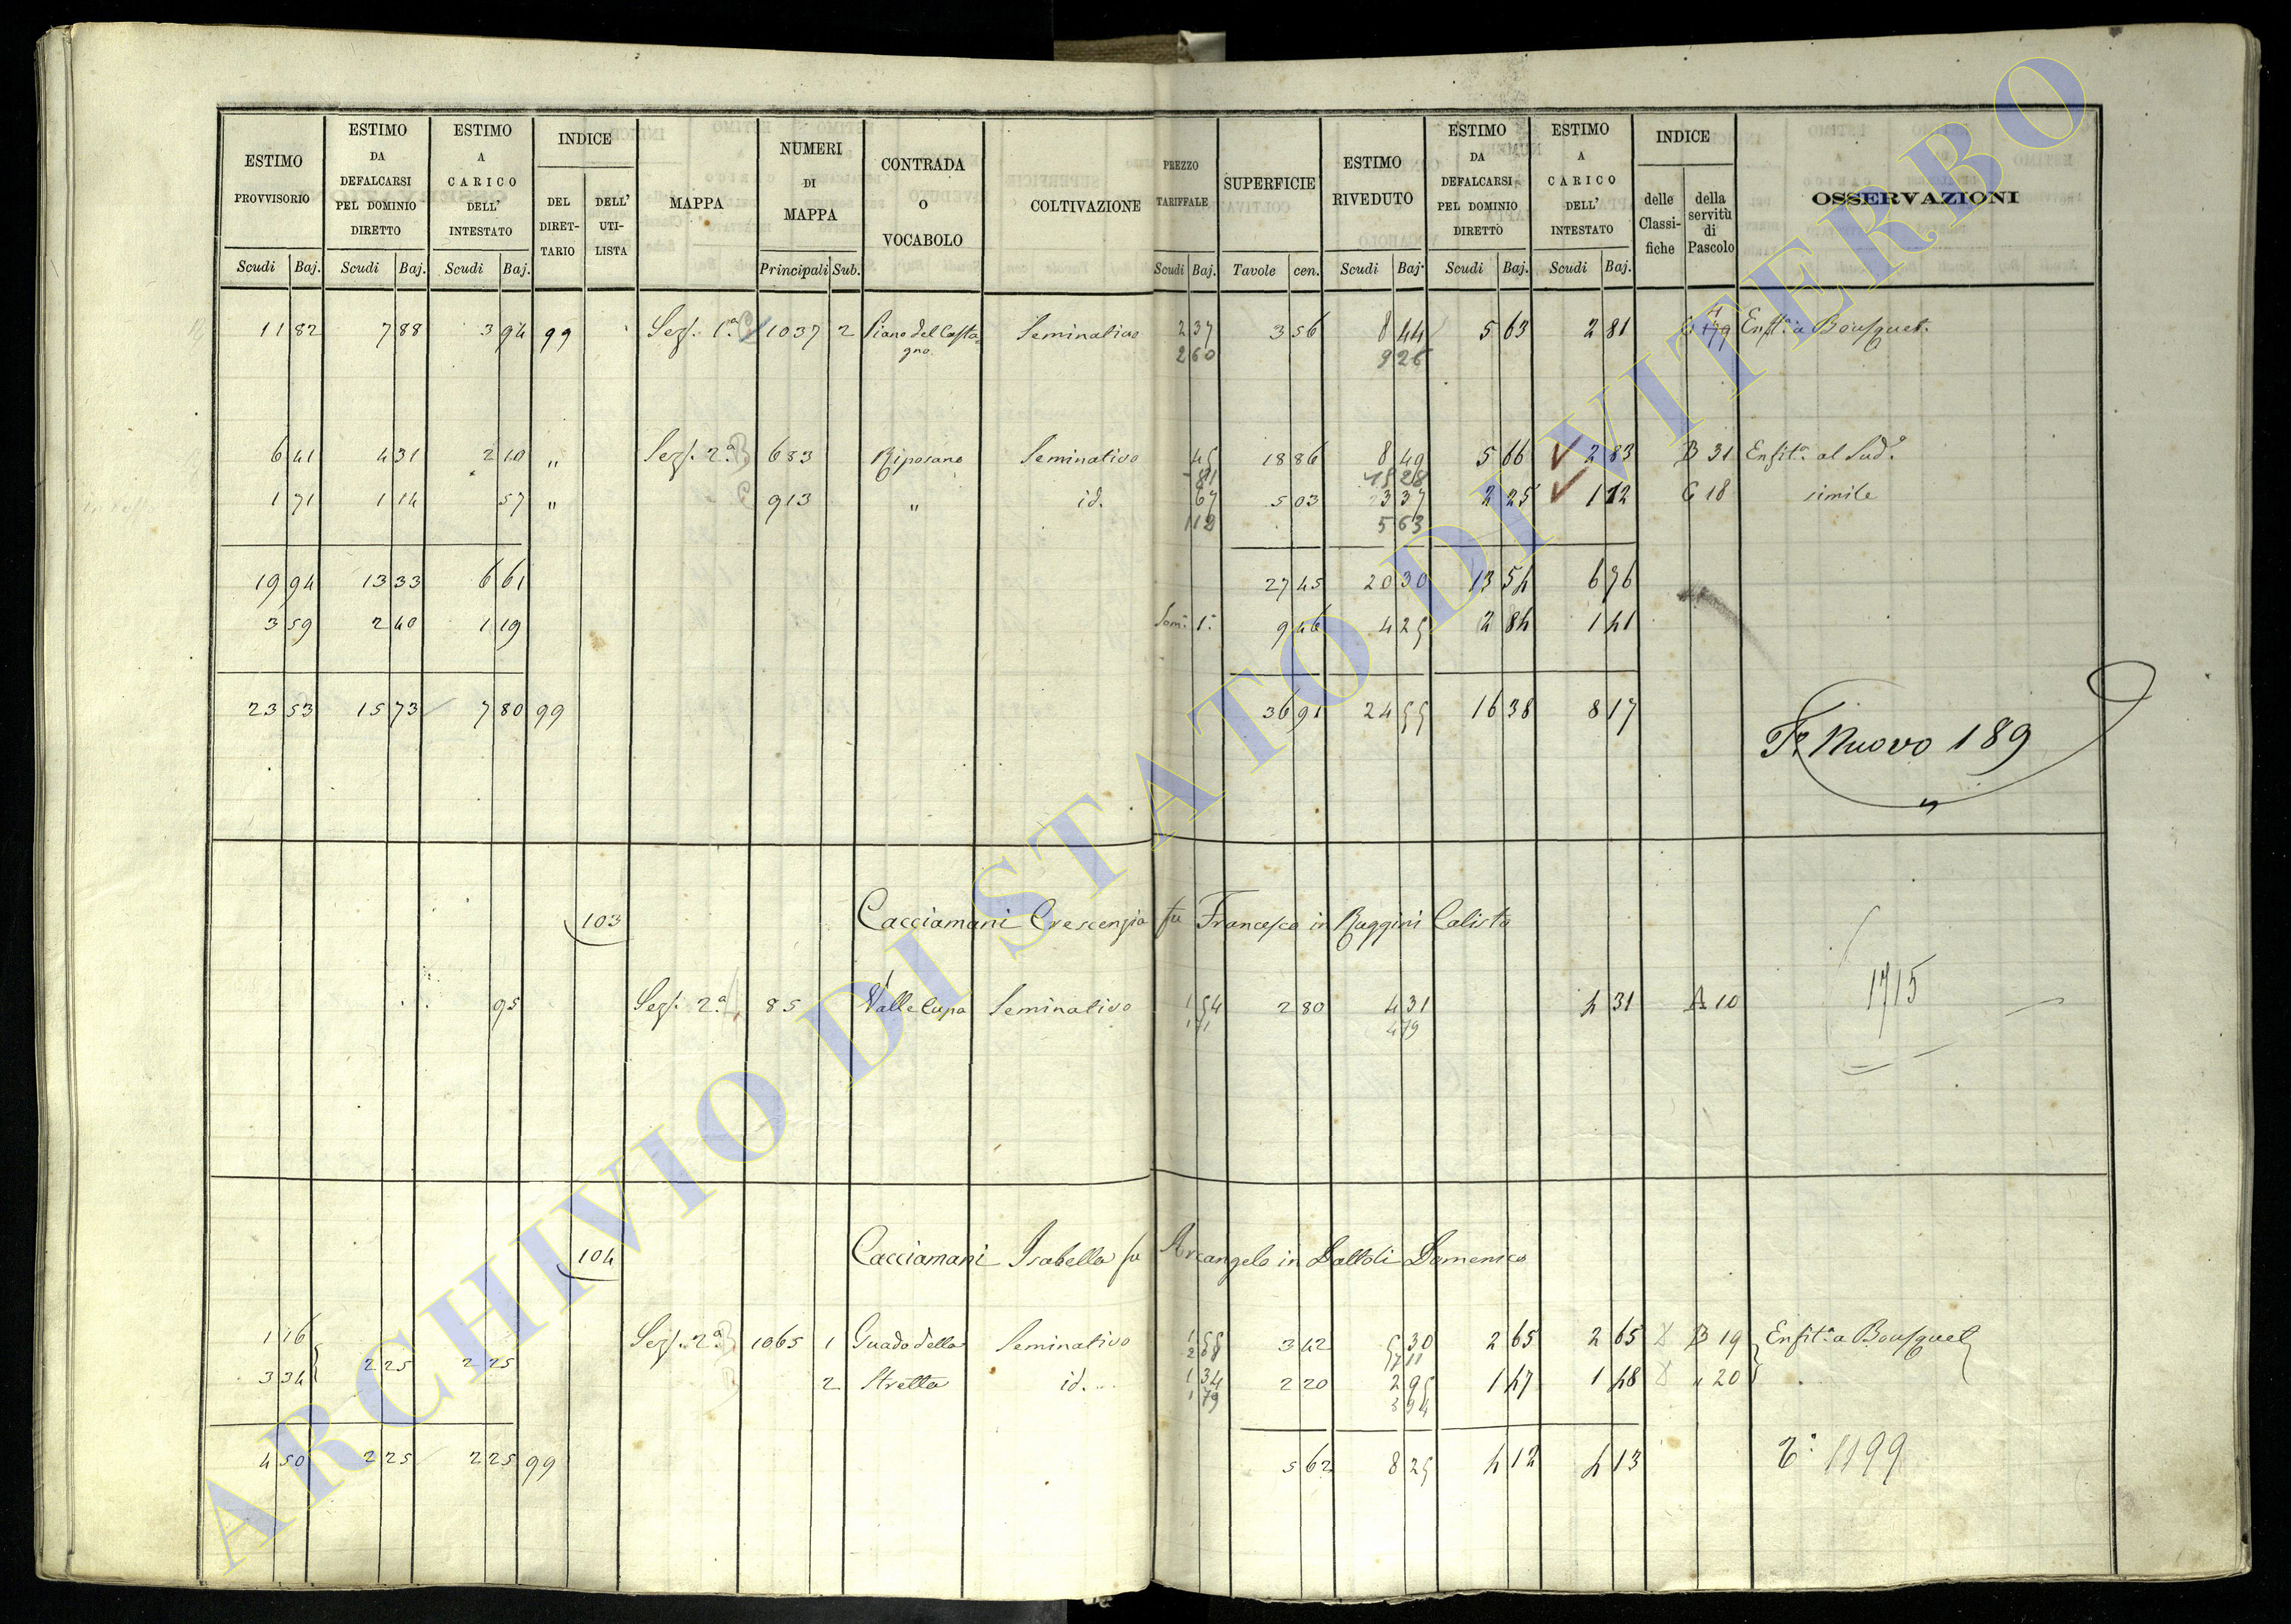 ESTIMO PROVVISORIO | ESTIMO DA DEFALCARSI PEL DOMINIO DIRETTO | ESTIMO A CARICO DELL' INTESTATO | INDICE DEL DIRET-TARIO | DELL' UTI-LISTA | MAPPA | NUMERI DI MAPPA | CONTRADA O VOCABOLO | COLTIVAZIONE | PREZZO TARIFFALE | SUPERFICIE | ESTIMO RIVEDUTO | ESTIMO DA DEFALCARSI PEL DOMINIO DIRETTO | ESTIMO A CARICO DELL' INTESTATO | INDICE delle Classi-fiche | della servitù di Pascolo | OSSERVAZIONI
Scudi Baj. | Scudi Baj. | Scudi Baj. | Principali Sub. | Scudi Baj. | Tavole cen. | Scudi Baj. | Scudi Baj. | Scudi Baj.
11 82 | 7 88 | 3 94 | 99 | Sez. 1ª | 1037 | 2 | Piano del Casta= | Seminativo | 2 37 | 3 56 | 8 44 | 5 63 | 2 81 | Enfit.ª a Bousquet.
gno | 2 60 | 9 26
6 41 | 4 31 | 2 10 | " | Sez. 2ª | 683 | Riposano | Seminativo | 45 | 18 86 | 8 49 | 5 66 | 2 83 | B 31 | Enfit.ª al Sud.º
81 | 15 28
1 71 | 1 14 | 57 | " | 913 | " | id. | 67 | 5 03 | 3 37 | 2 25 | 1 12 | C 18 | simile
1 12 | 5 63
19 94 | 13 33 | 6 61 | 27 45 | 20 30 | 13 54 | 6 76
3 59 | 2 40 | 1 19 | Som. 1ª | 9 46 | 4 25 | 2 84 | 1 41
23 53 | 15 73 | 7 80 | 99 | 36 91 | 24 55 | 16 38 | 8 17
Fº Nuovo 189
103 | Cacciamani Crescenzia fu Francesco in Ruggini Calisto
95 | Sez. 2ª | 85 | Valle Cupa | Seminativo | 1 54 | 2 80 | 4 31 | 4 31 | A 10 | 1715
1 71 | 4 79
104 | Cacciamani Isabella fu Arcangelo in Dattoli Domenico
1 16 | Sez. 2ª | 1065 | 1 | Guado della | Seminativo | 1 55 | 3 42 | 5 30 | 2 65 | 2 65 | B 19 | Enfit.ª a Bousquet
2 25 | 2 25
3 34 | 2 | Stretta | id. | 1 34 | 2 20 | 2 95 | 1 47 | 1 48 | " 20
1 79 | 3 94
4 50 | 2 25 | 2 25 | 99 | 5 62 | 8 25 | 4 12 | 4 13 | 1199
ARCHIVIO DI STATO DI VITERBO